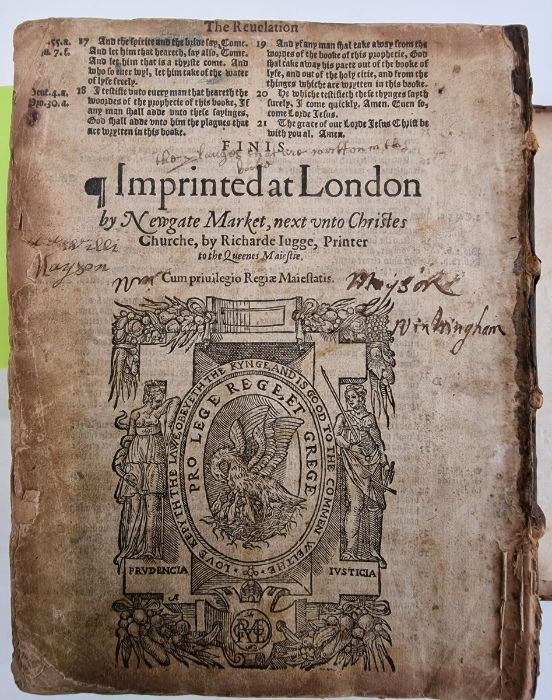 The Reuelation
55.a.
17 And the spirite and the bride say, Come.
And let him that heareth, say also, Come.
And let him that is a thyrste come. And
who so euer wyl, let him take of the water
of lyfe freely.
Deut.4.a.
Pro.30.a.
18 I testifie vnto euery man that heareth the
woordes of the prophecie of this booke, If
any man shall adde vnto these sayinges,
God shall adde vnto him the plagues that
are wrytten in this booke.
19 And yf any man shal take away from the
wordes of the booke of this prophecie, God
shal take away his parte out of the booke of
lyfe, and out of the holy citie, and from the
thinges whiche are wrytten in this booke.
20 He whiche testifieth these thynges sayth
surely, I come quickly. Amen. Euen so,
come Lorde Iesus.
21 The grace of our Lorde Iesus Christ be
with you al. Amen.
FINIS.
¶ Imprinted at London
by Newgate Market, next vnto Christes
Churche, by Richarde Iugge, Printer
to the Queenes Maiestie.
Mayson
Cum priuilegio Regiæ Maiestatis.
Winkingham
LOVE KEPYTH THE LAWE, OBEYETH THE KYNGE, AND IS GOOD TO THE COMMEN WELTHE
PRO LEGE REGE ET GREGE
PRVDENCIA
IVSTICIA